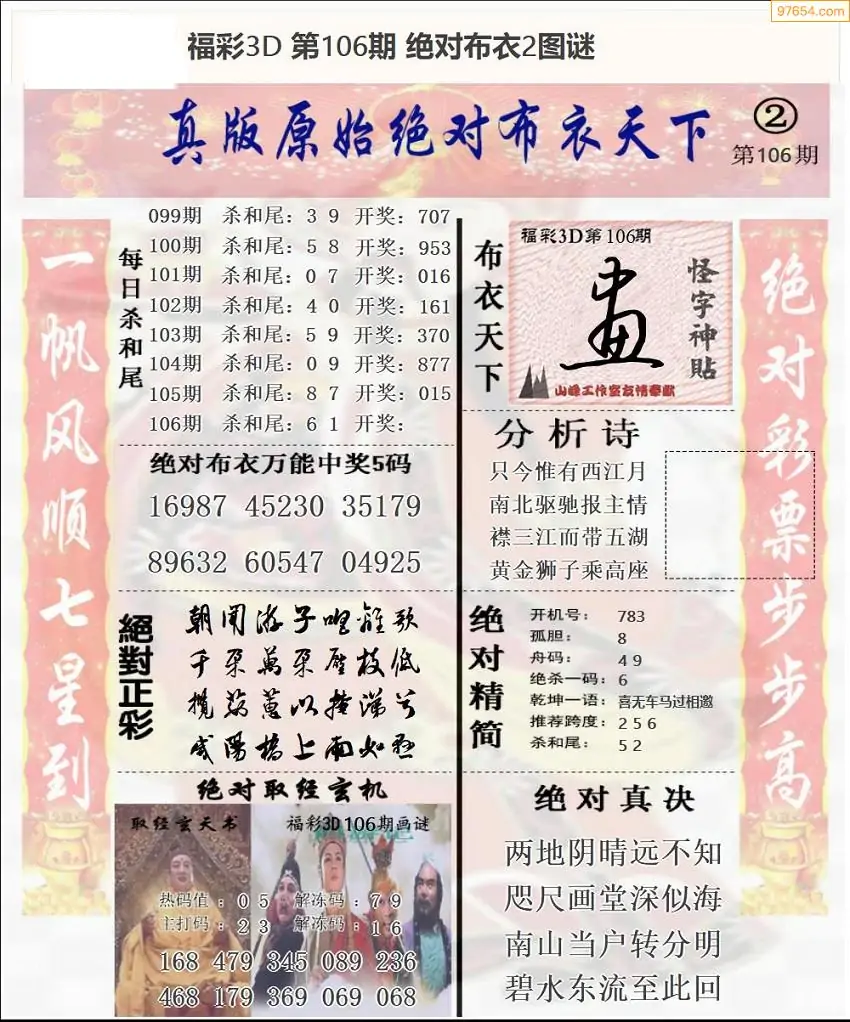 97654.com
福彩3D 第106期 绝对布衣2图谜
真版原始绝对布衣天下
②
第106期
一帆风顺七星到
每日杀和尾
099期 杀和尾：3 9 开奖：707
100期 杀和尾：5 8 开奖：953
101期 杀和尾：0 7 开奖：016
102期 杀和尾：4 0 开奖：161
103期 杀和尾：5 9 开奖：370
104期 杀和尾：0 9 开奖：877
105期 杀和尾：8 7 开奖：015
106期 杀和尾：6 1 开奖：
绝对布衣万能中奖5码
16987 45230 35179
89632 60547 04925
絕對正彩
朝闻游子唱离歌
千朵萬朵压枝低
揽茹蕙以掩涕兮
咸阳桥上雨如悬
绝对取经玄机
取经玄天书
福彩3D106期画谜
热码值：0 5 解冻码：7 9
主打码：2 3 解冻码：1 6
168 479 345 089 236
468 179 369 069 068
布衣天下
福彩3D第106期
怪字神贴
山峰工作室友情奉献
分析诗
只今惟有西江月
南北驱驰报主情
襟三江而带五湖
黄金狮子乘高座
绝对精简
开机号： 783
孤胆： 8
舟码： 4 9
绝杀一码：6
乾坤一语：喜无车马过相邀
推荐跨度：2 5 6
杀和尾： 5 2
绝对真决
两地阴晴远不知
咫尺画堂深似海
南山当户转分明
碧水东流至此回
绝对彩票步步高